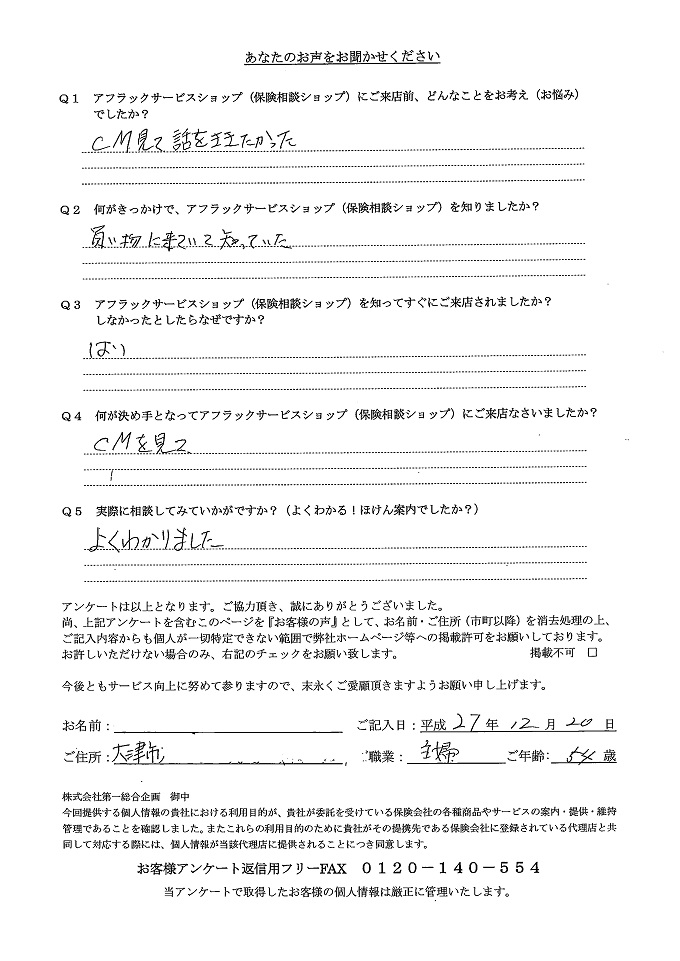 あなたのお声をお聞かせください
Q1 アフラックサービスショップ（保険相談ショップ）にご来店前、どんなことをお考え（お悩み）
でしたか？
CM見て話をききたかった
Q2 何がきっかけで、アフラックサービスショップ（保険相談ショップ）を知りましたか？
買い物に来ていて知っていた
Q3 アフラックサービスショップ（保険相談ショップ）を知ってすぐにご来店されましたか？
しなかったとしたらなぜですか？
はい
Q4 何が決め手となってアフラックサービスショップ（保険相談ショップ）にご来店なさいましたか？
CMを見て
Q5 実際に相談してみていかがですか？（よくわかる！ほけん案内でしたか？）
よくわかりました
アンケートは以上となります。ご協力頂き、誠にありがとうございました。
尚、上記アンケートを含むこのページを『お客様の声』として、お名前・ご住所（市町以降）を消去処理の上、
ご記入内容からも個人が一切特定できない範囲で弊社ホームページ等への掲載許可をお願いしております。
お許しいただけない場合のみ、右記のチェックをお願い致します。 掲載不可 □
今後ともサービス向上に努めて参りますので、末永くご愛顧頂きますようお願い申し上げます。
お名前： ご記入日：平成 27 年 12 月 20 日
ご住所：大津市 ご職業： 主婦 ご年齢： 54 歳
株式会社第一総合企画 御中
今回提供する個人情報の貴社における利用目的が、貴社が委託を受けている保険会社の各種商品やサービスの案内・提供・維持
管理であることを確認しました。またこれらの利用目的のために貴社がその提携先である保険会社に登録されている代理店と共
同して対応する際には、個人情報が当該代理店に提供されることにつき同意します。
お客様アンケート返信用フリーFAX 0120－140－554
当アンケートで取得したお客様の個人情報は厳正に管理いたします。